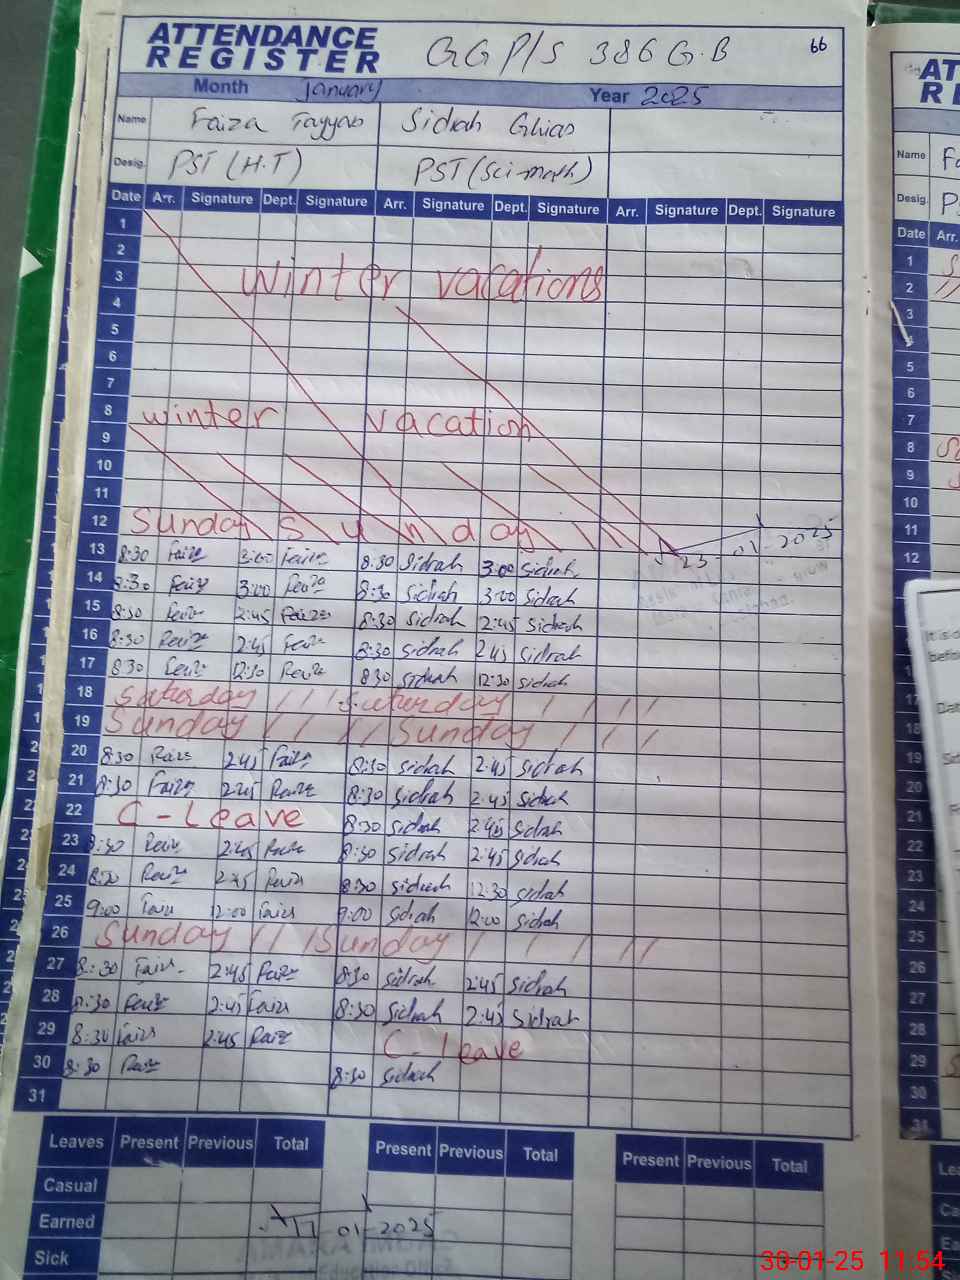 ATTENDANCE
REGISTER
GGP/S 386 G.B
66
Month January Year 2025
Name Faiza Tayyab Sidrah Ghias
Desig. PST (H.T) PST (Sci-math)
Date Arr. Signature Dept. Signature Arr. Signature Dept. Signature Arr. Signature Dept. Signature
1
2
3 Winter vacations
4
5
6
7
8 Winter vacation
9
10
11
12 Sunday Sunday
23-01-2025
13 8:30 Faiza 3:00 Faiza 8:30 Sidrah 3:00 Sidrah
14 8:30 Faiza 3:00 Faiza 8:30 Sidrah 3:00 Sidrah
15 8:30 Faiza 2:45 Faiza 8:30 Sidrah 2:45 Sidrah
16 8:30 Faiza 2:45 Faiza 8:30 Sidrah 2:45 Sidrah
17 8:30 Faiza 12:30 Faiza 8:30 Sidrah 12:30 Sidrah
18 Saturday Saturday
19 Sunday Sunday
20 8:30 Faiza 2:45 Faiza 8:30 Sidrah 2:45 Sidrah
21 8:30 Faiza 2:45 Faiza 8:30 Sidrah 2:45 Sidrah
22 C-Leave 8:30 Sidrah 2:45 Sidrah
23 8:30 Faiza 2:45 Faiza 8:30 Sidrah 2:45 Sidrah
24 8:30 Faiza Faiza 8:30 Sidrah 12:30 Sidrah
25 9:00 Faiza 12:00 Faiza 9:00 Sidrah 12:00 Sidrah
26 Sunday Sunday
27 8:30 Faiza 2:45 Faiza 8:30 Sidrah 2:45 Sidrah
28 8:30 Faiza 2:45 Faiza 8:30 Sidrah 2:45 Sidrah
29 8:30 Faiza 2:45 Faiza C-leave
30 8:30 Faiza 8:30 Sidrah
31
Leaves Present Previous Total Present Previous Total Present Previous Total
Casual
Earned
17-01-2025
Sick
Name
Desig.
Date Arr.
1
2
3
4
5
6
7
8
9
10
11
12
17
18
19
20
21
22
23
24
25
26
27
28
29
30
31
30-01-25 11:54